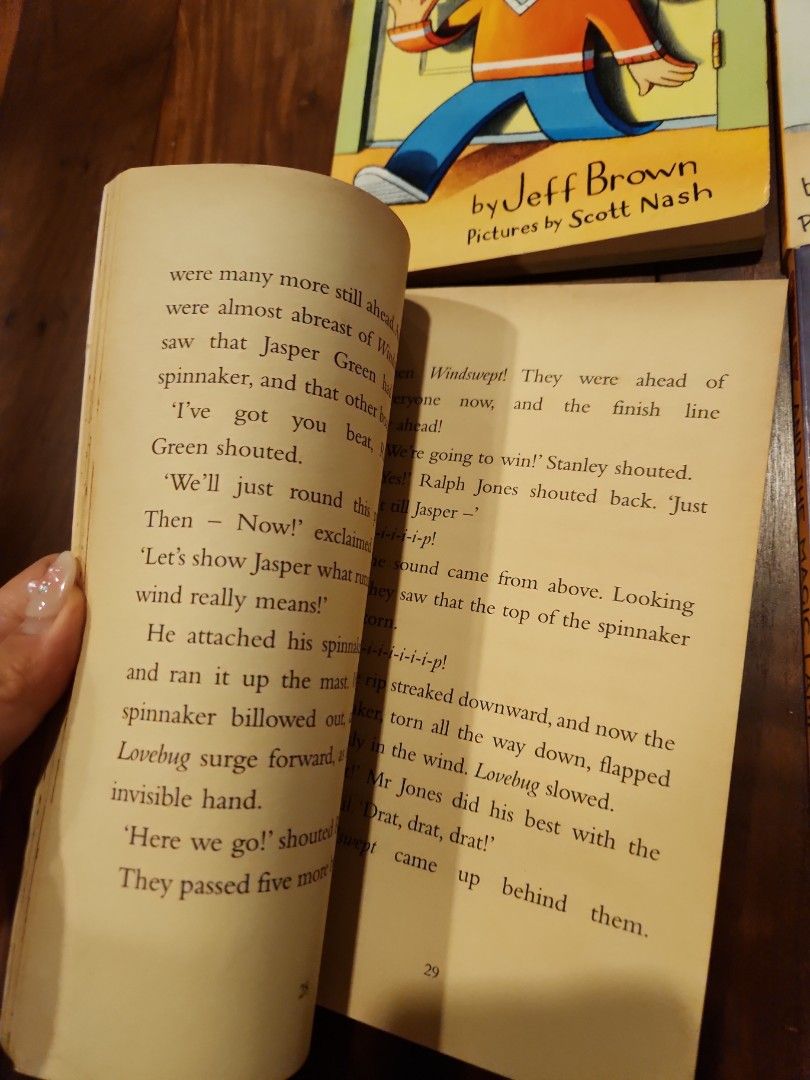 by Jeff Brown
Pictures by Scott Nash
were many more still ahead.
were almost abreast of
saw that Jasper Green
spinnaker, and that other
‘I’ve got you beat,
Green shouted.
‘We’ll just round this
Then – Now!’ exclaimed
‘Let’s show Jasper what
wind really means!’
He attached his
and ran it up the mast.
spinnaker billowed out,
Lovebug surge forward,
invisible hand.
‘Here we go!’ shouted
They passed five more
28
Windswept! They were ahead of
now, and the finish line
ahead!
‘We’re going to win!’ Stanley shouted.
‘Yes!’ Ralph Jones shouted back. ‘Just
till Jasper –’
-i-i-i-i-p!
sound came from above. Looking
they saw that the top of the spinnaker
torn.
-i-i-i-i-i-i-p!
rip streaked downward, and now the
torn all the way down, flapped
in the wind. Lovebug slowed.
Mr Jones did his best with the
‘Drat, drat, drat!’
came up behind them.
29